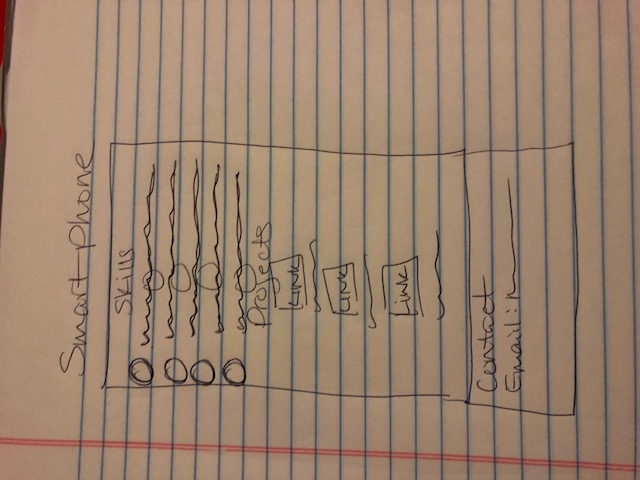 Smart phone
Skills
Projects
LINK
LINK
Link
Contact
Email: